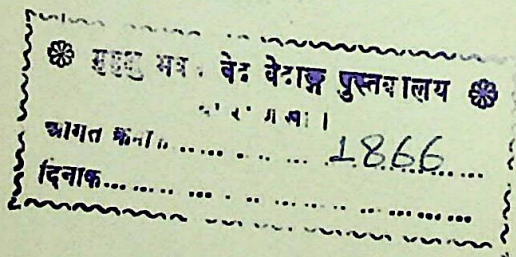 ❀ मुमुक्षु भवन वेद वेदाङ्ग पुस्तकालय ❀
वाराणसी।
आगत क्रमांक ............... 1866 ......
दिनांक..........................................